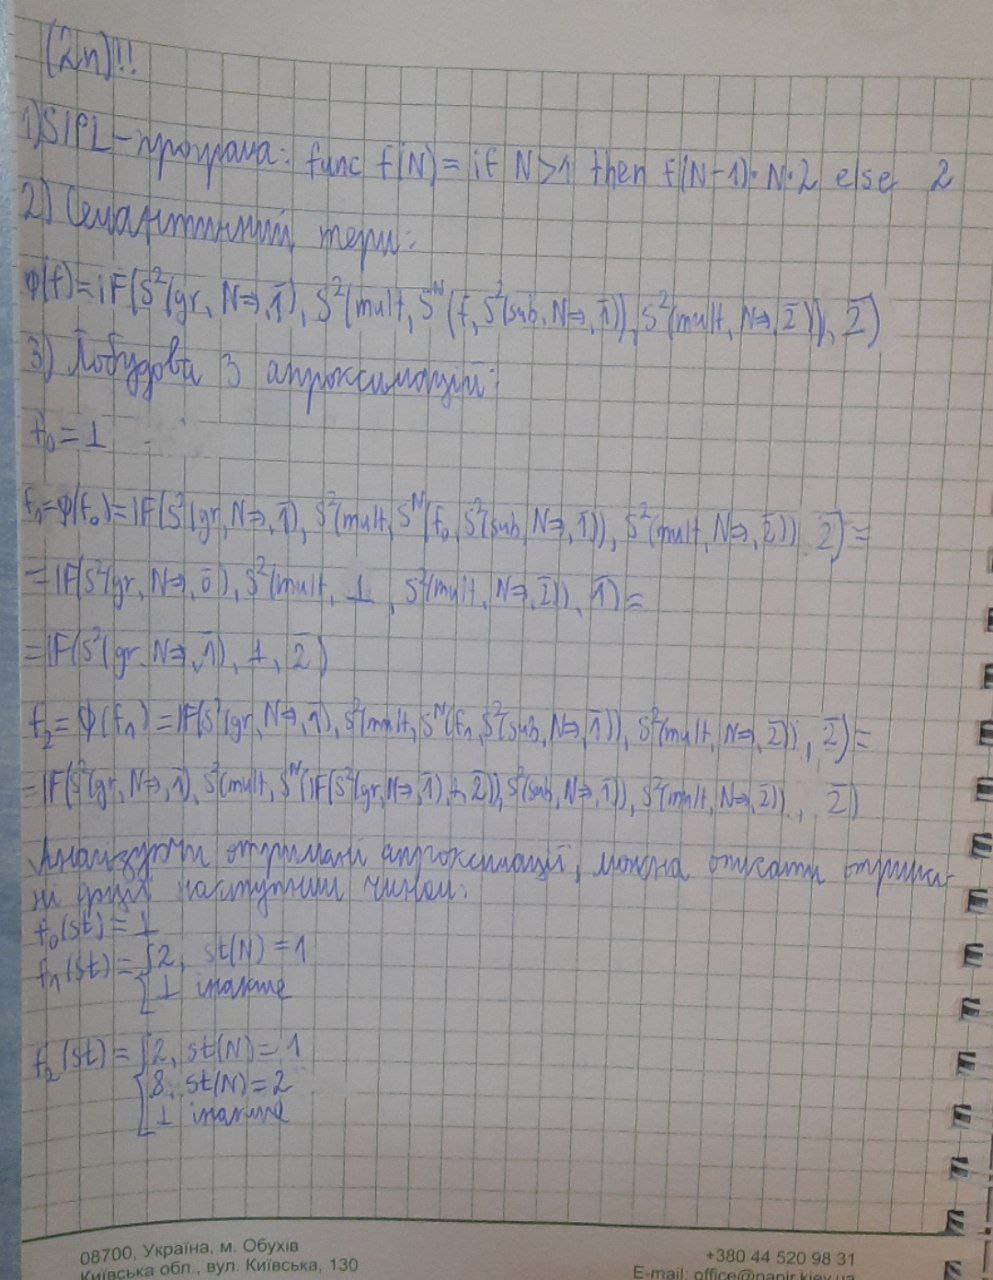 (2n)!!
1) SIPL-програма: func f(N)= if N>1 then f(N-1)·N·2 else 2
2) Семантичний терм:
φ(f)=IF(S²(gr, N⇒, 1̄), S²(mult, Sᴺ(f, S²(sub, N⇒, 1̄)), S²(mult, N⇒, 2̄)), 2̄)
3) Побудова 3 апроксимацій:
f₀=⊥
f₁=φ(f₀)=IF(S²(gr, N⇒, 1̄), S²(mult, Sᴺ(f₀, S²(sub, N⇒, 1̄)), S²(mult, N⇒, 2̄)), 2̄)=
=IF(S²(gr, N⇒, 0̄), S²(mult, ⊥, S²(mult, N⇒, 2̄)), 1̄)=
=IF(S²(gr, N⇒, 1̄), ⊥, 2̄)
f₂=φ(f₁)=IF(S²(gr, N⇒, 1̄), S²(mult, Sᴺ(f₁, S²(sub, N⇒, 1̄)), S²(mult, N⇒, 2̄)), 2̄)=
=IF(S²(gr, N⇒, 1̄), S²(mult, Sᴺ(IF(S²(gr, N⇒, 1̄), ⊥, 2̄), S²(sub, N⇒, 1̄)), S²(mult, N⇒, 2̄)), 2̄)
Аналізуючи отримані апроксимації, можна описати отрима-
ні функції наступним чином:
f₀(st)=⊥
f₁(st)={2, st(N)=1
⊥ інакше
f₂(st)={2, st(N)=1
8, st(N)=2
⊥ інакше
08700, Україна, м. Обухів
Київська обл., вул. Київська, 130
+380 44 520 98 31
E-mail: office@papir.kiev.ua